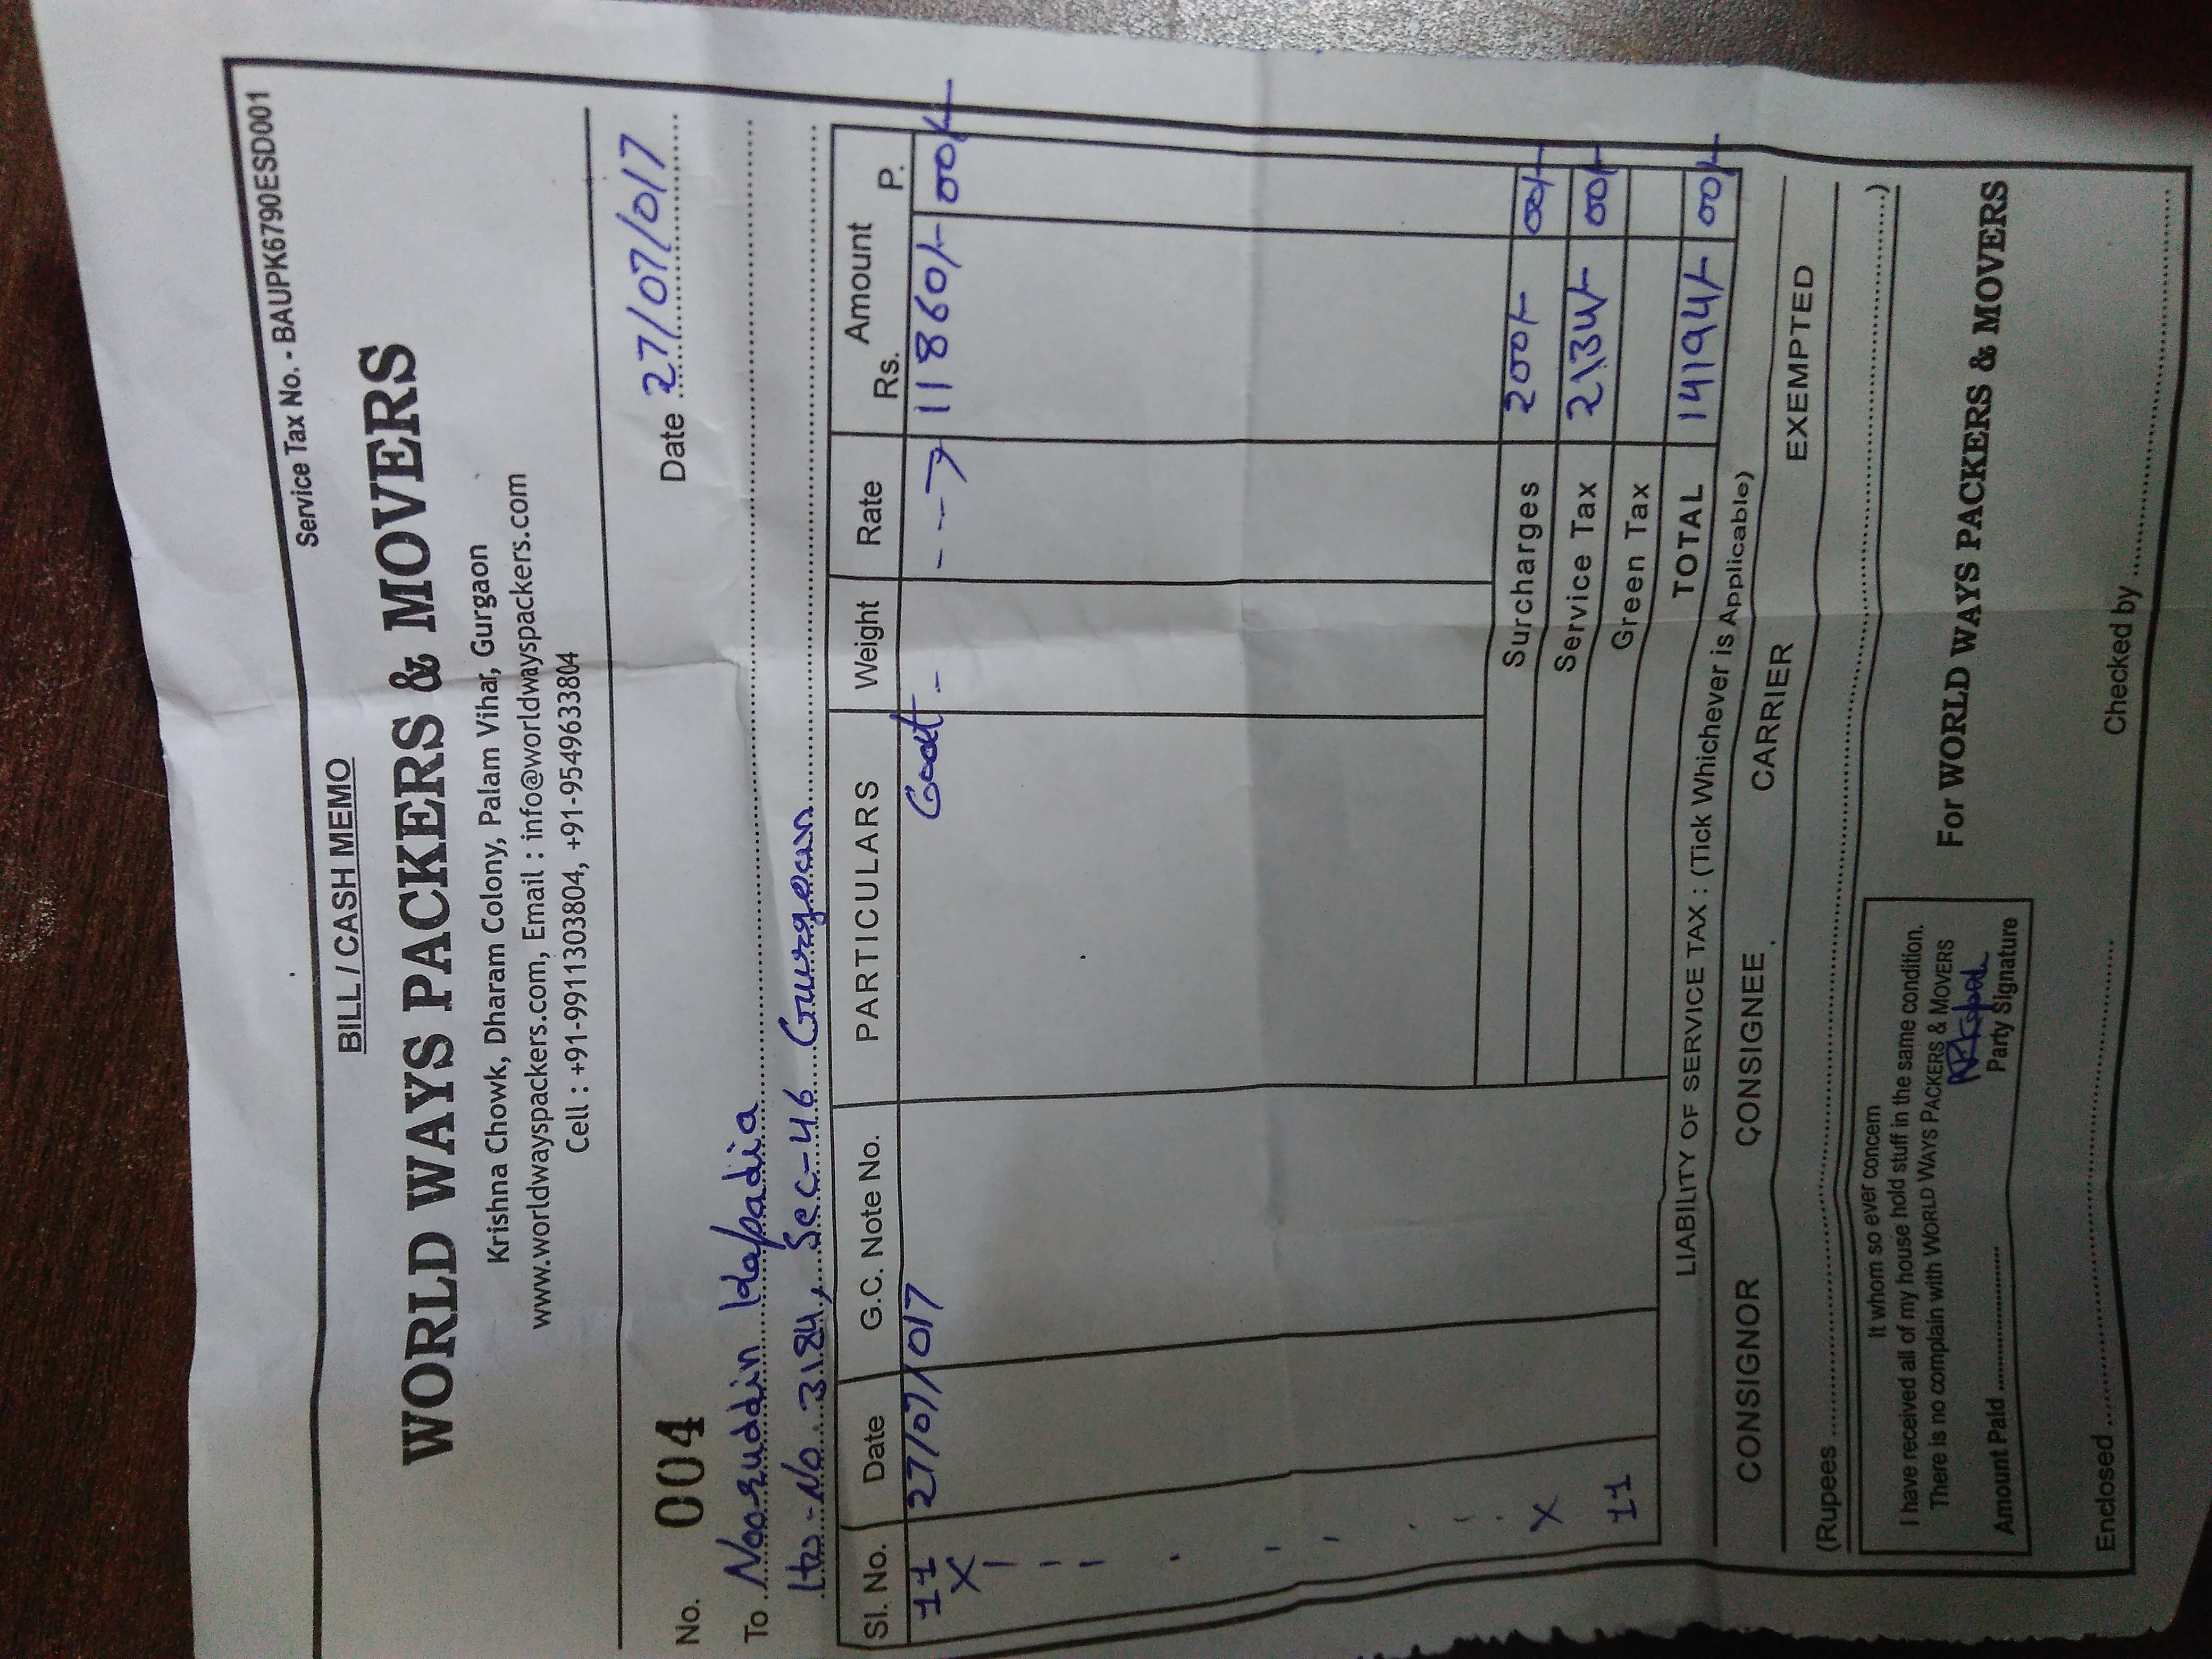 Service Tax No. - BAUPK6790ESD001
BILL / CASH MEMO
WORLD WAYS PACKERS & MOVERS
Krishna Chowk, Dharam Colony, Palam Vihar, Gurgaon
www.worldwayspackers.com, Email : info@worldwayspackers.com
Cell : +91-9911303804, +91-9549633804
No. 004 Date 27/07/017
To Nooruddin Kapadia
No. 3184, Sec-46 Gurgoan
Sl. No. Date G.C. Note No. PARTICULARS Weight Rate Amount Rs. P.
11 27/07/017 - ---> 11860/- 00/-
X
X
11
Surcharges 200/- 00/-
Service Tax 2134/- 00/-
Green Tax
TOTAL 14194/- 00/-
LIABILITY OF SERVICE TAX : (Tick Whichever is Applicable)
CONSIGNOR CONSIGNEE CARRIER EXEMPTED
(Rupees ........................................)
It whom so ever concern
I have received all of my house hold stuff in the same condition.
There is no complain with WORLD WAYS PACKERS & MOVERS
Amount Paid ........................ Party Signature
For WORLD WAYS PACKERS & MOVERS
Enclosed ........................................
Checked by ........................................